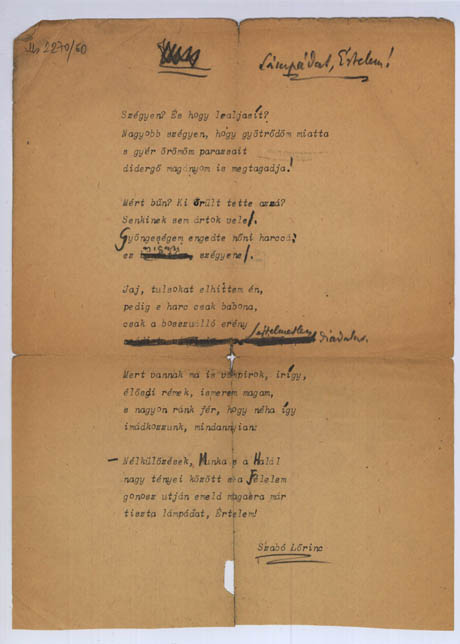 Ms 2270/60
Lámpádat, Értelem!
Szégyen? És hogy lealjasít?
Nagyobb szégyen, hogy gyötrődöm miatta
s gyér örömöm parazsait
didergő magányom is megtagadja!
Mért bűn? Ki őrült tette azzá?
Senkinek sem ártok vele!
Gyöngeségem engedte nőni harccá
ez szégyene!
Jaj, tulsokat elhittem én,
pedig e harc csak babona,
csak a bosszuálló erény
diadala.
Mert vannak ma is vámpirok, irígy,
élősdi rémek, ismerem magam,
s nagyon ránk fér, hogy néha így
imádkozzunk, mindannyian:
– Nélkülözések, Munka s a Halál
nagy tényei között s a Félelem
gonosz utján emeld magasra már
tiszta lámpádat, Értelem!
Szabó Lőrinc